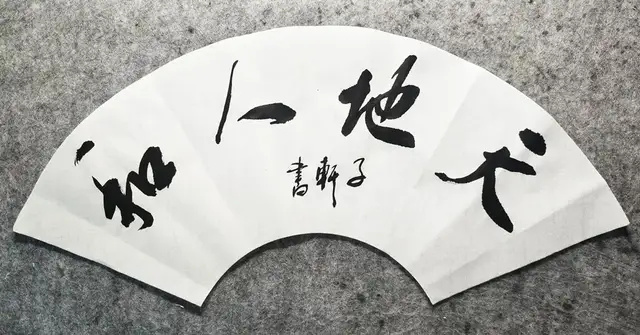 天地人和
子軒書